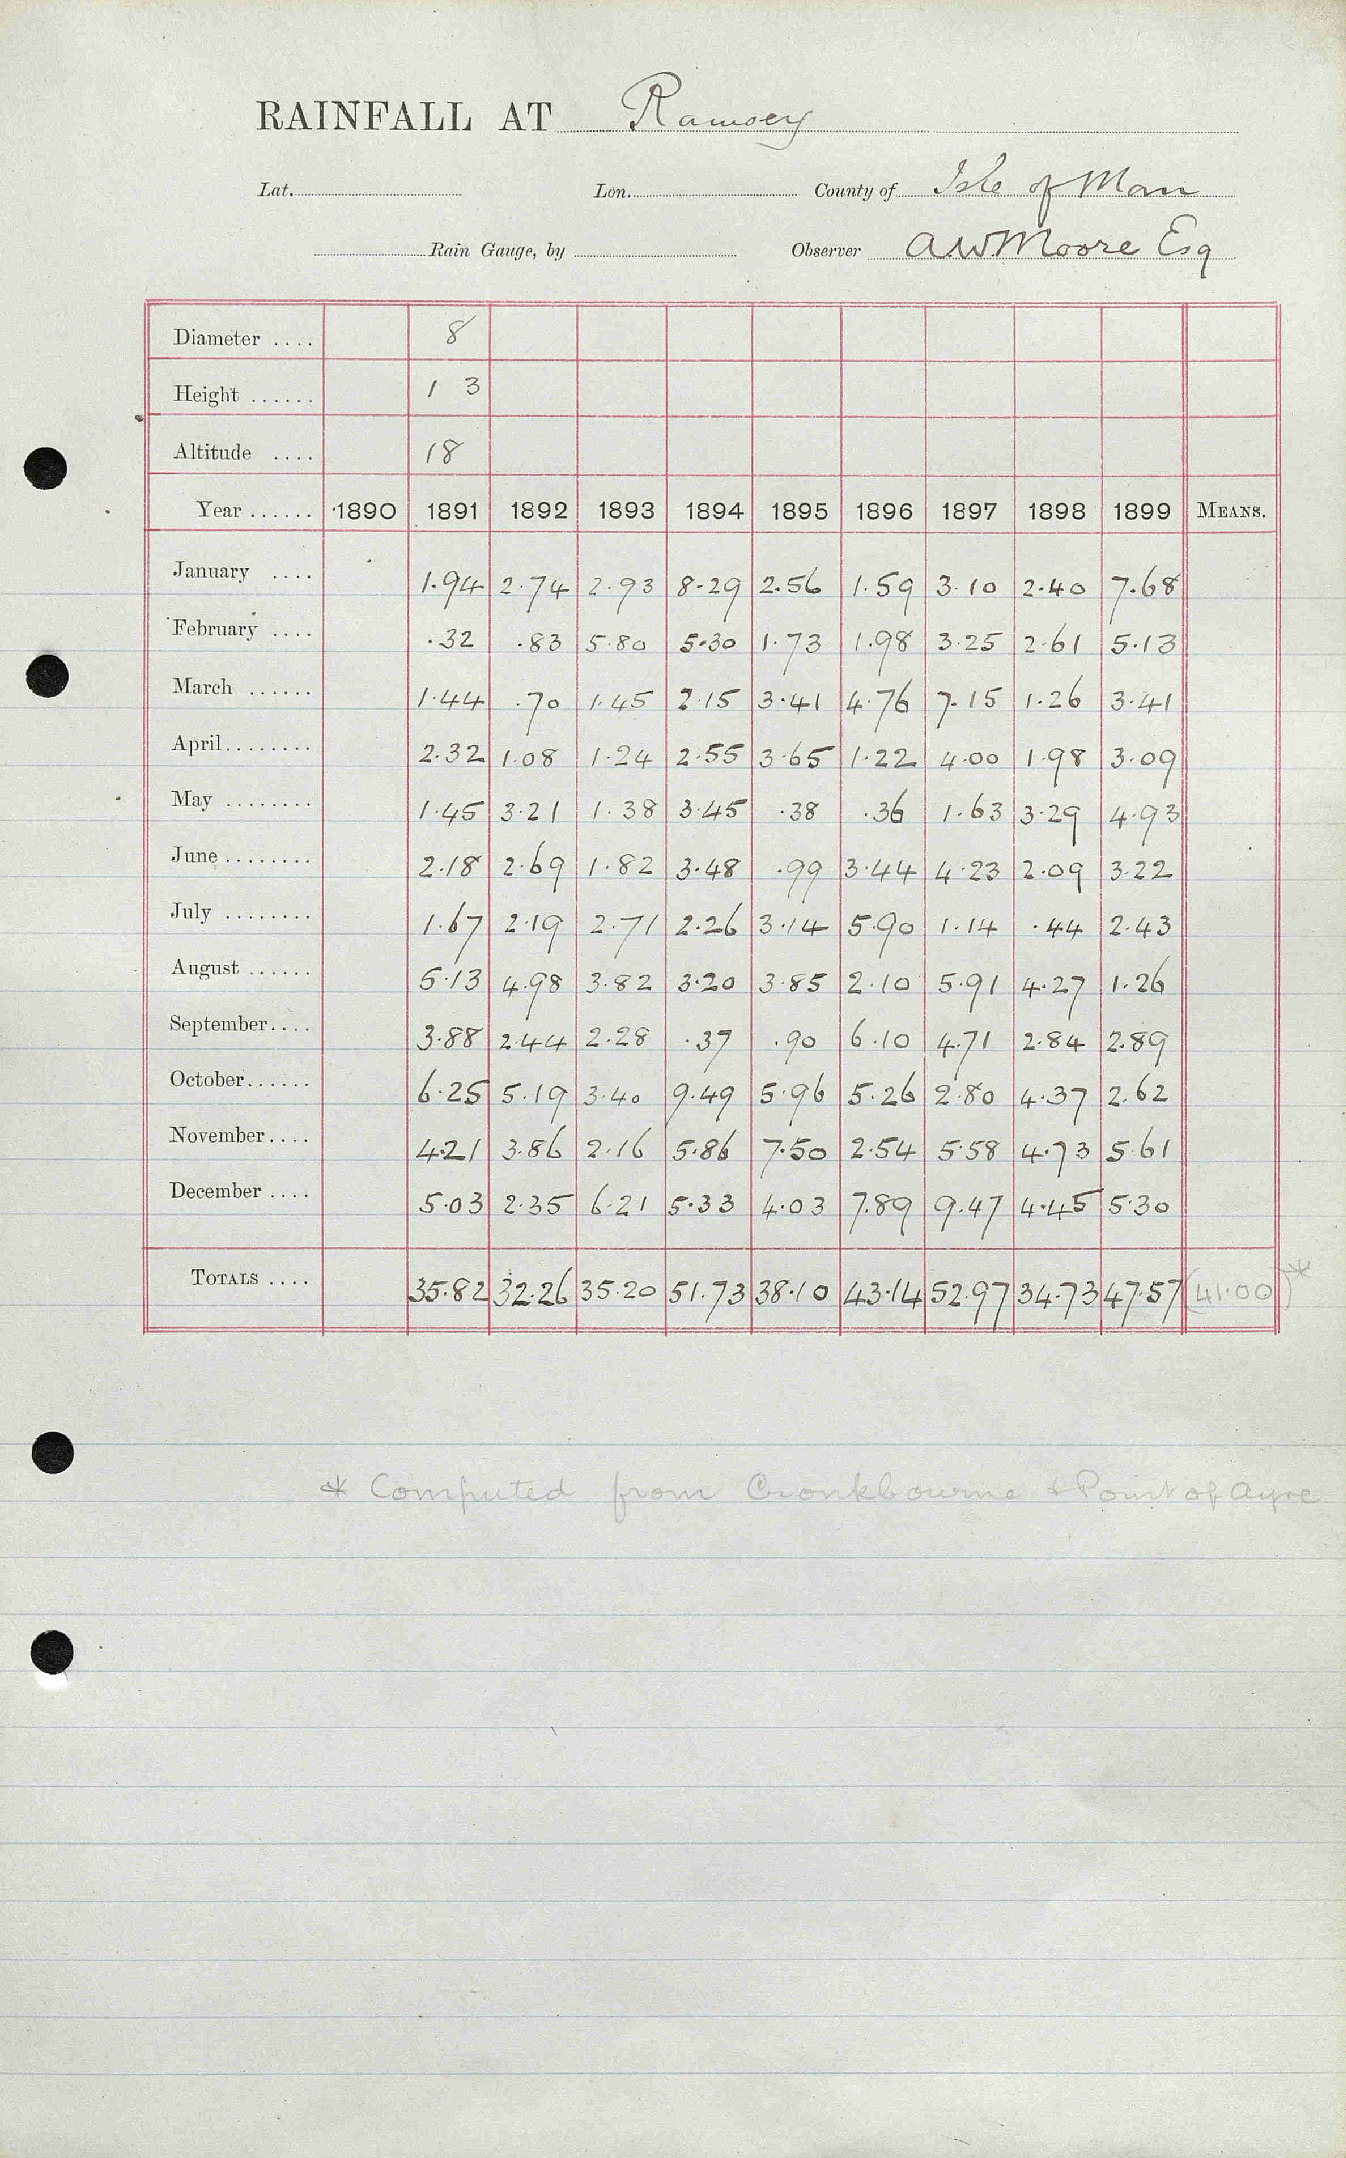 RAINFALL AT Ramsey
Lat. Lon. County of Isle of Man
Rain Gauge, by Observer AWMoore Esq
Diameter .... 8
Height ...... 1 3
Altitude .... 18
Year ...... 1890 1891 1892 1893 1894 1895 1896 1897 1898 1899 MEANS.
January .... 1.94 2.74 2.93 8.29 2.56 1.59 3.10 2.40 7.68
February .... .32 .83 5.80 5.30 1.73 1.98 3.25 2.61 5.13
March ...... 1.44 .70 1.45 2.15 3.41 4.76 7.15 1.26 3.41
April........ 2.32 1.08 1.24 2.55 3.65 1.22 4.00 1.98 3.09
May ........ 1.45 3.21 1.38 3.45 .38 .36 1.63 3.29 4.93
June ........ 2.18 2.69 1.82 3.48 .99 3.44 4.23 2.09 3.22
July ........ 1.67 2.19 2.71 2.26 3.14 5.90 1.14 .44 2.43
August ...... 5.13 4.98 3.82 3.20 3.85 2.10 5.91 4.27 1.26
September.... 3.88 2.44 2.28 .37 .90 6.10 4.71 2.84 2.89
October...... 6.25 5.19 3.40 9.49 5.96 5.26 2.80 4.37 2.62
November.... 4.21 3.86 2.16 5.86 7.50 2.54 5.58 4.73 5.61
December .... 5.03 2.35 6.21 5.33 4.03 7.89 9.47 4.45 5.30
TOTALS .... 35.82 32.26 35.20 51.73 38.10 43.14 52.97 34.73 47.57 (41.00)*
* Computed from Cronkbourne & Point of Ayre